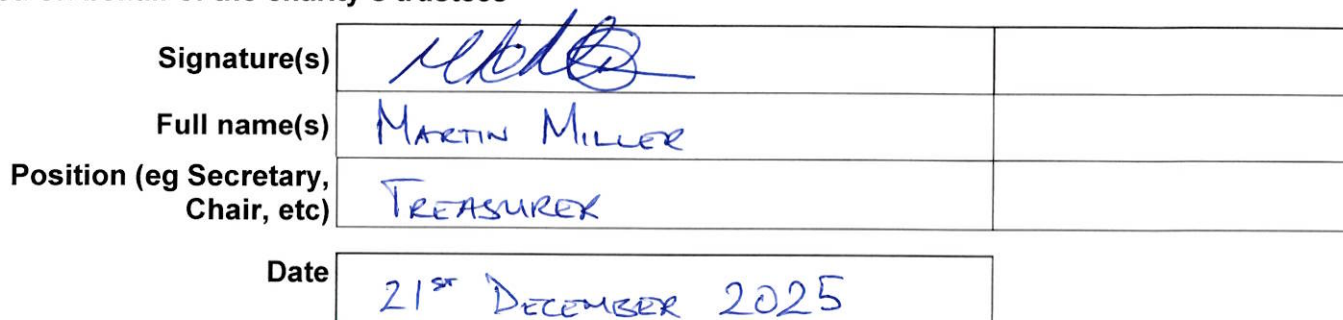 Signature(s)
Full name(s) MARTIN MILLER
Position (eg Secretary,
Chair, etc) TREASURER
Date 21ST DECEMBER 2025